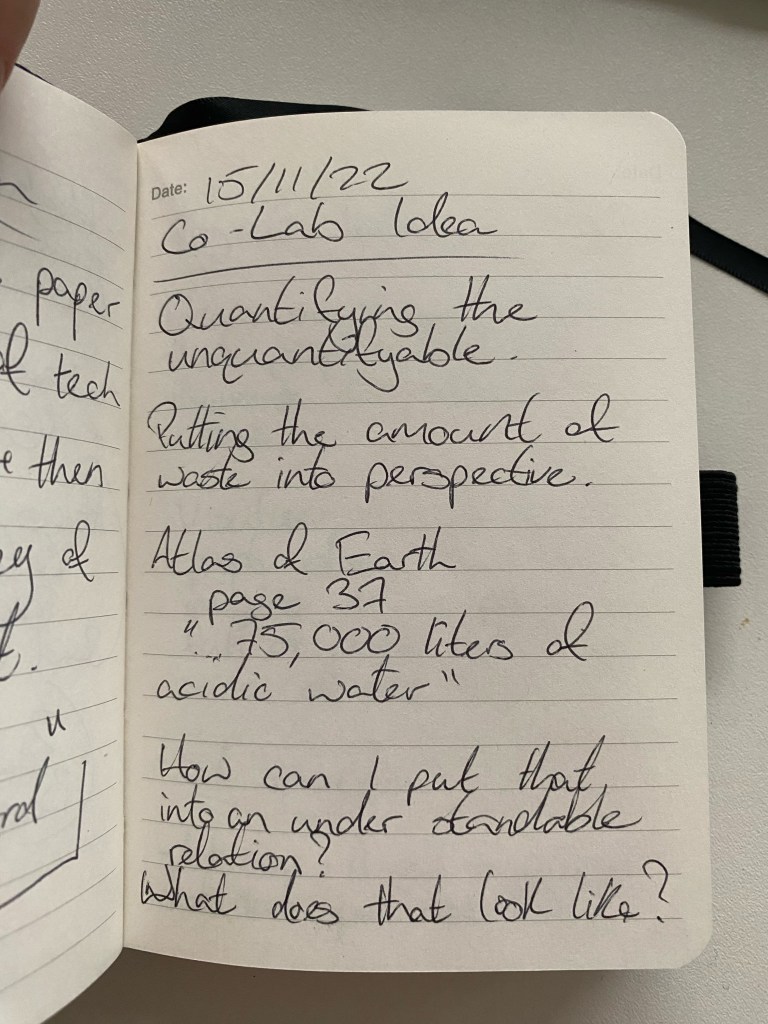 paper
of tech
then
of
u
Date: 15/11/22
Co-Lab Idea
Quantifying the
unquantifyable.
Putting the amount of
waste into perspective.
Atlas of Earth
page 37
"...75,000 liters of
acidic water"
How can I put that
into an under standable
relation?
What does that look like?